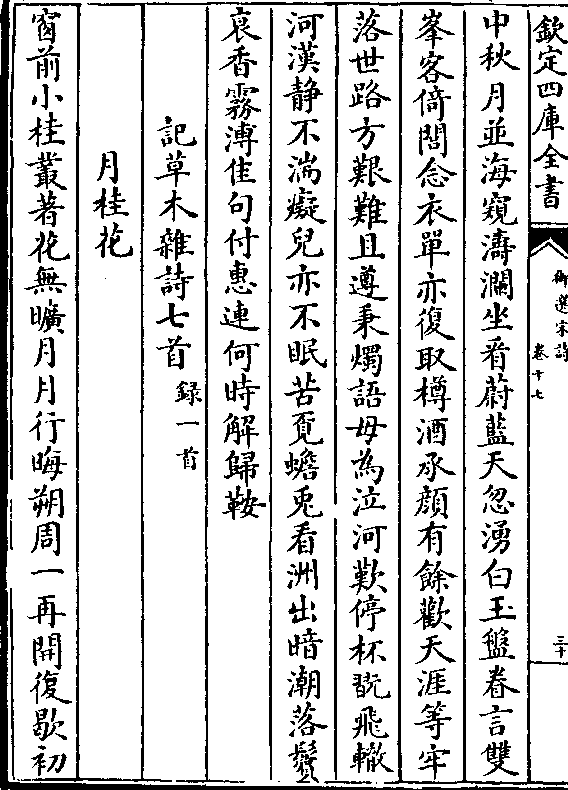 欽定四庫全書
御選宋詩
卷十七
三十
中秋月並海窺濤瀾坐看蔚藍天忽湧白玉盤眷言雙
峯客倚閭念衣單亦復取樽酒承顔有餘歡天涯等牢
落世路方艱難且遵秉燭語毋為泣河歎停杯翫飛轍
河漢静不湍癡兒亦不眠苦覔蟾兎看洲出暗潮落鬢
衰香霧漙佳句付惠連何時解歸鞍
記草木雜詩七首録一首
月桂花
窗前小桂叢著花無曠月月行晦朔周一再開復歇初